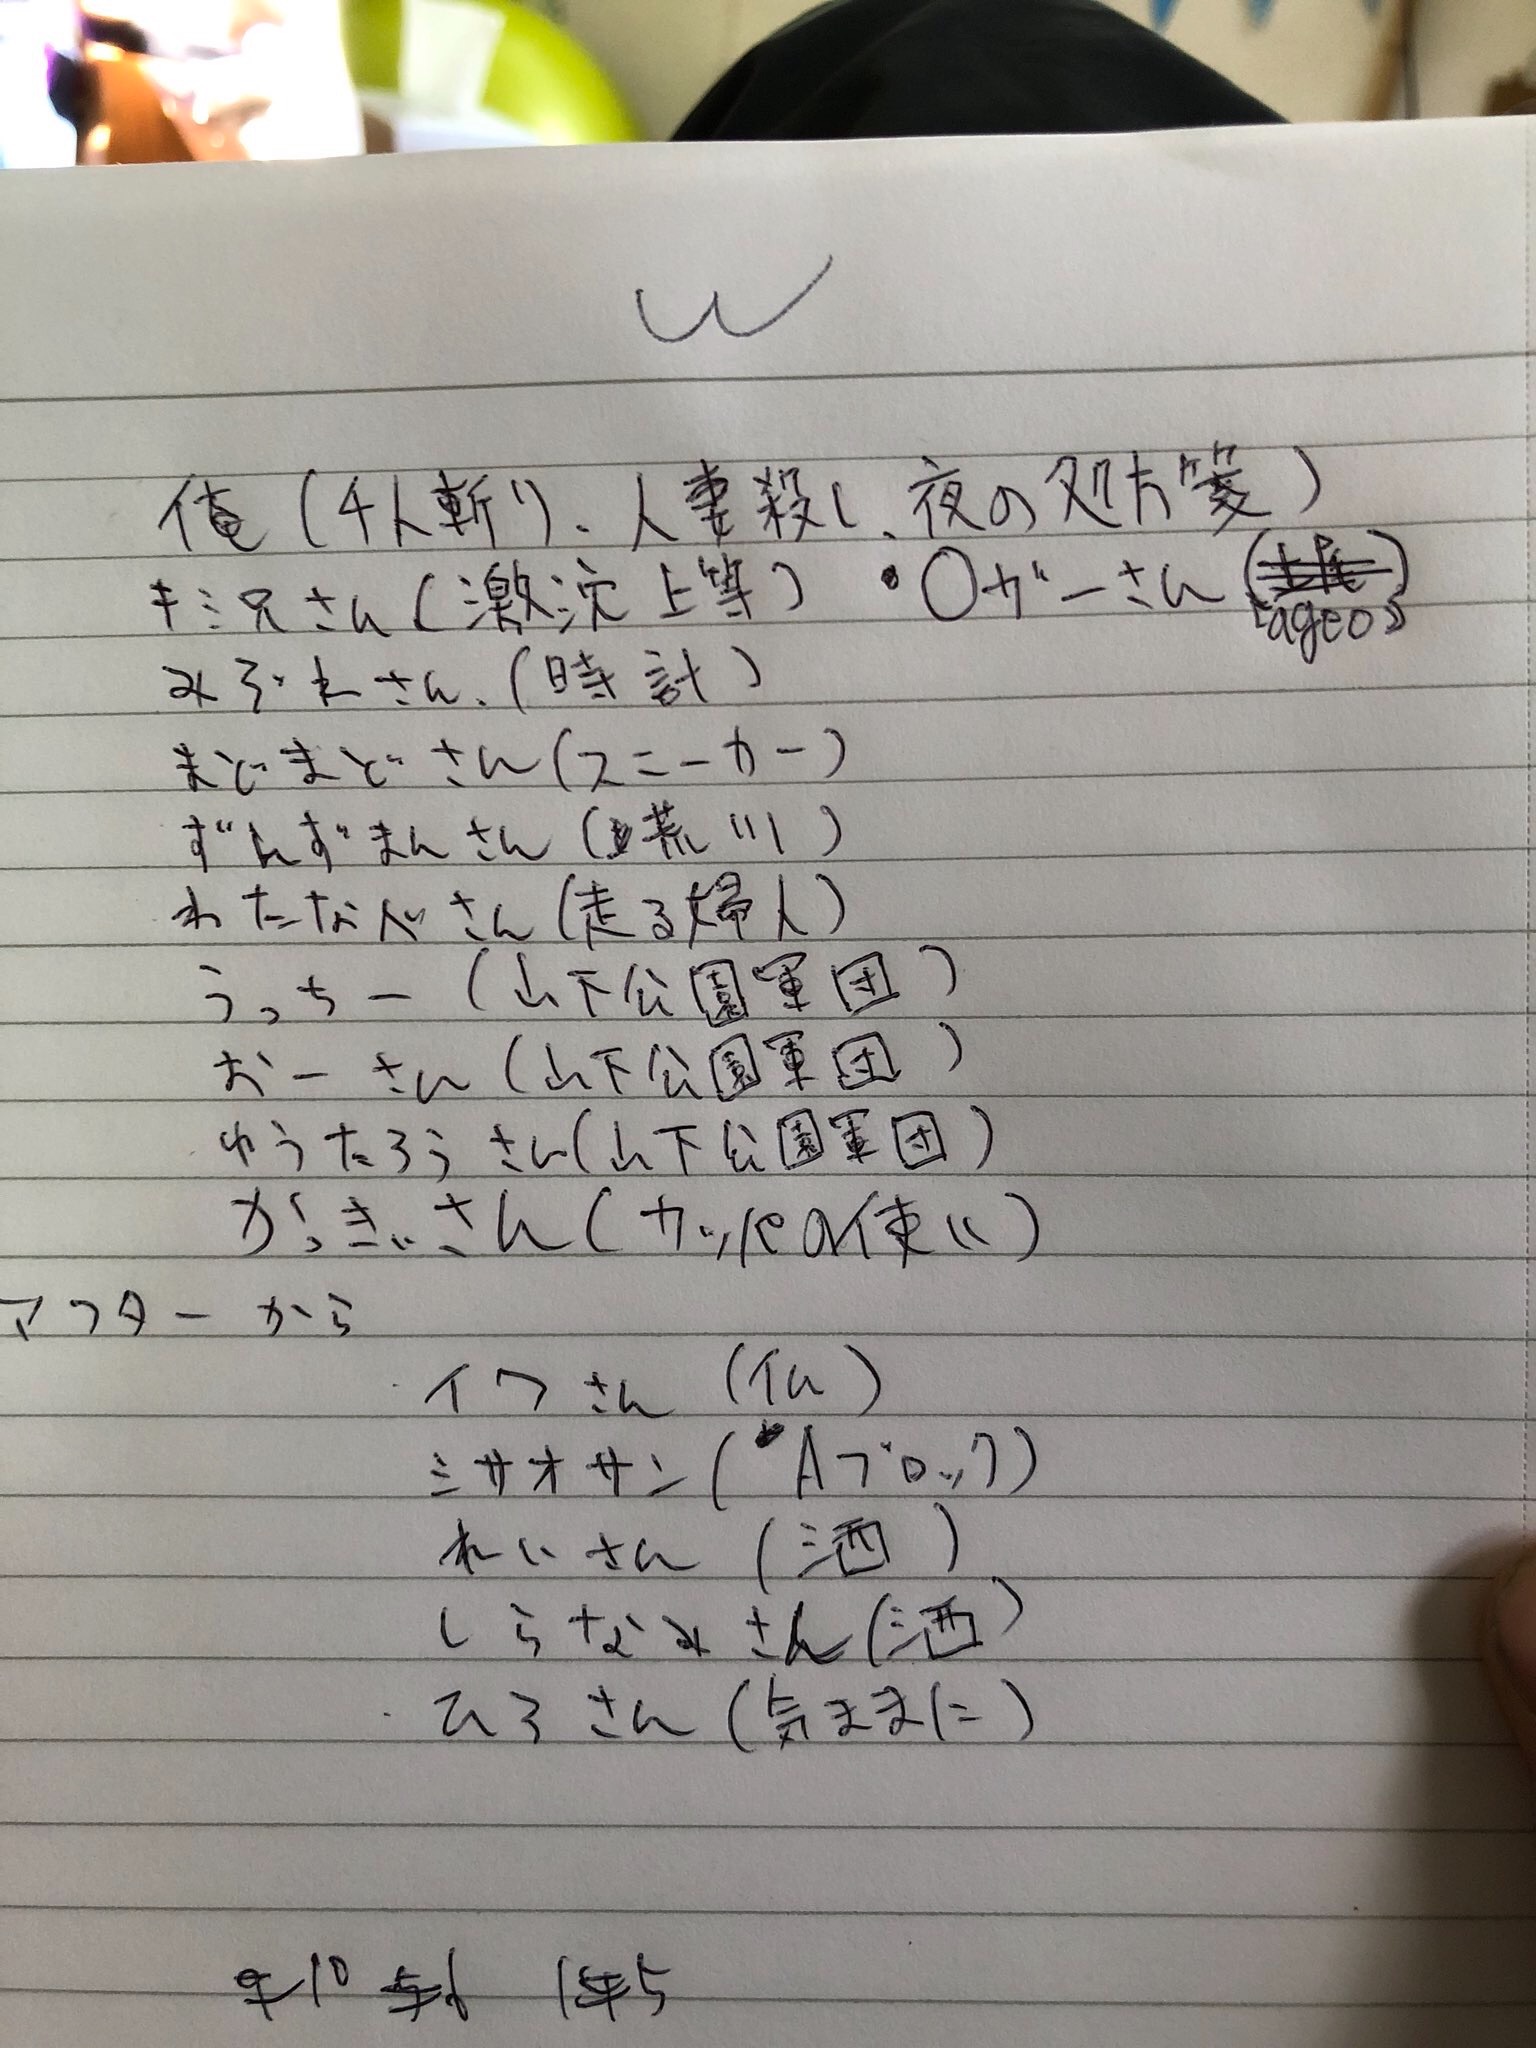 W
俺(千人斬り、人妻殺し、夜の処方箋)
キミ兄さん(激沈上等) ・〇ガーさん(
「ageo」)
みぞれさん、(時計)
まどまどさん(スニーカー)
ずんずまんさん(荒川)
わたなべさん(走る婦人)
うっちー(山下公園軍団)
おーさん(山下公園軍団)
ゆうたろうさん(山下公園軍団)
がっきぃさん(カッパの使い)
アフターから
・イワさん(仏)
ミサオサン(Aブロック)
れいさん(酒)
しらなみさん(酒)
・ひろさん(気ままに)